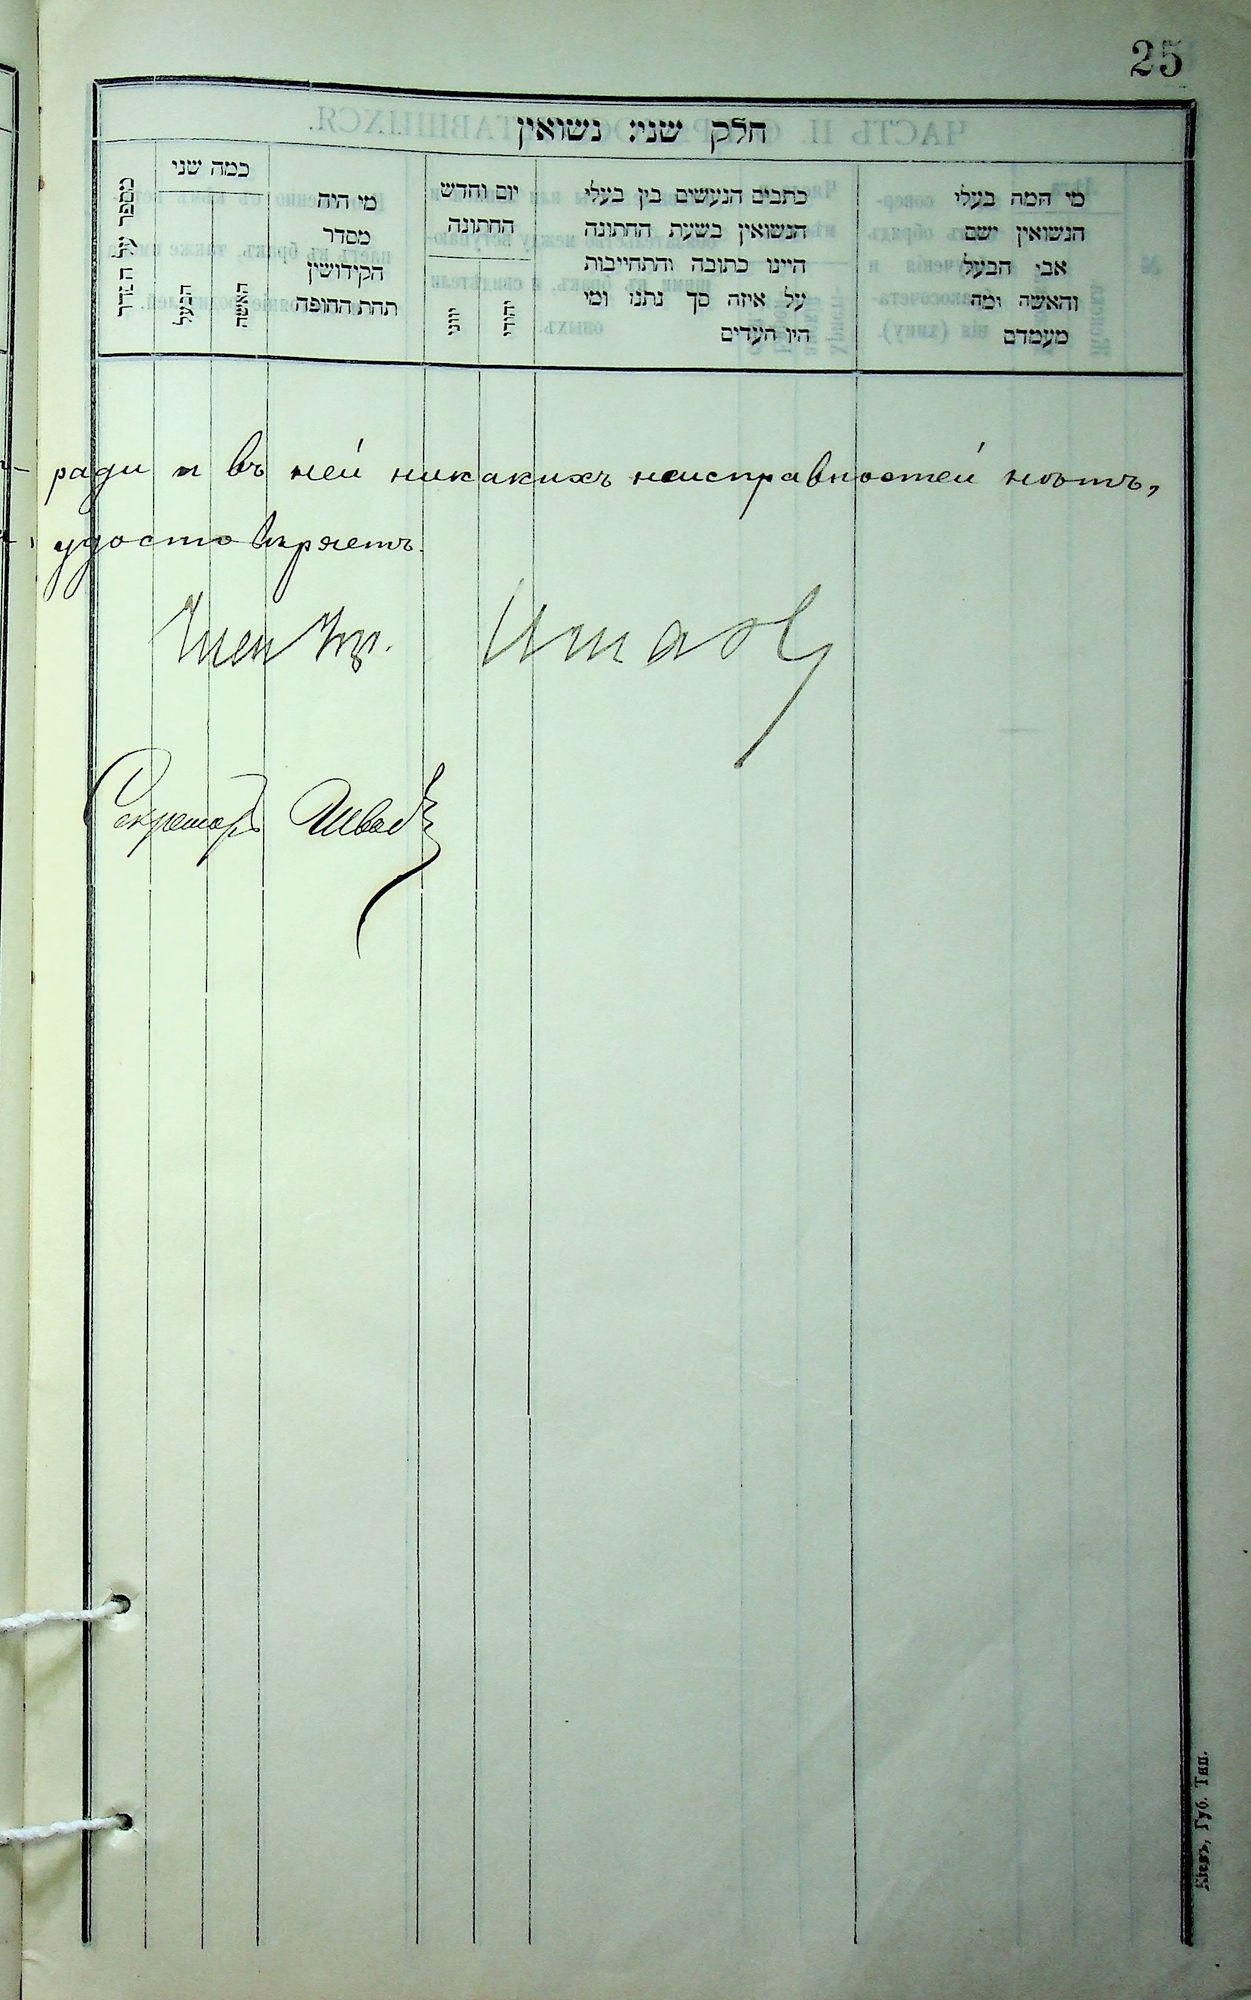 25
חלק שני: נשואין
מספר על הסדר
כמה שני
הבעל
האשה
מי היה
מסדר
הקידושין
תחת החופה
יום וחדש
החתונה
יוני
יהודי
כתבים הנעשים בין בעלי
הנשואין בשעת החתונה
היינו כתובה והתחייבות
על איזה סך נתנו ומי
היו העדים
מי המה בעלי
הנשואין ישם
אבי הבעל
והאשה ומה
מעמדם
ради и въ ней никакихъ неисправностей нѣтъ,
удостовѣряетъ.
Член Уп.
Секретарь
Кіевъ, Губ. Тип.